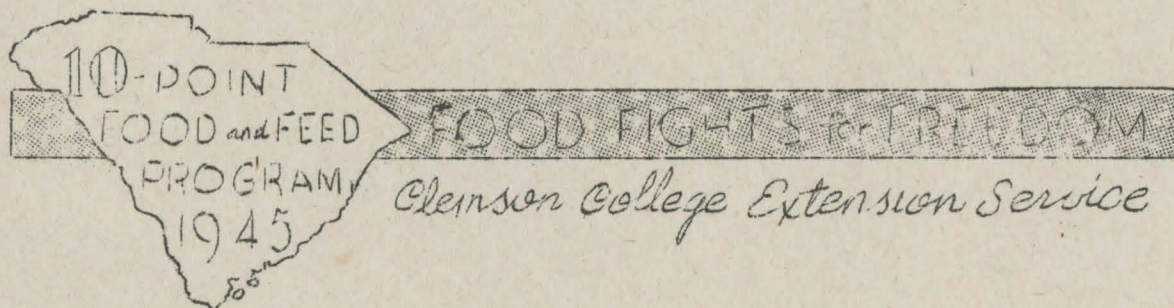 10-POINT
FOOD and FEED
PROGRAM,
1945
FOOD FIGHTS for FREEDOM
Clemson College Extension Service